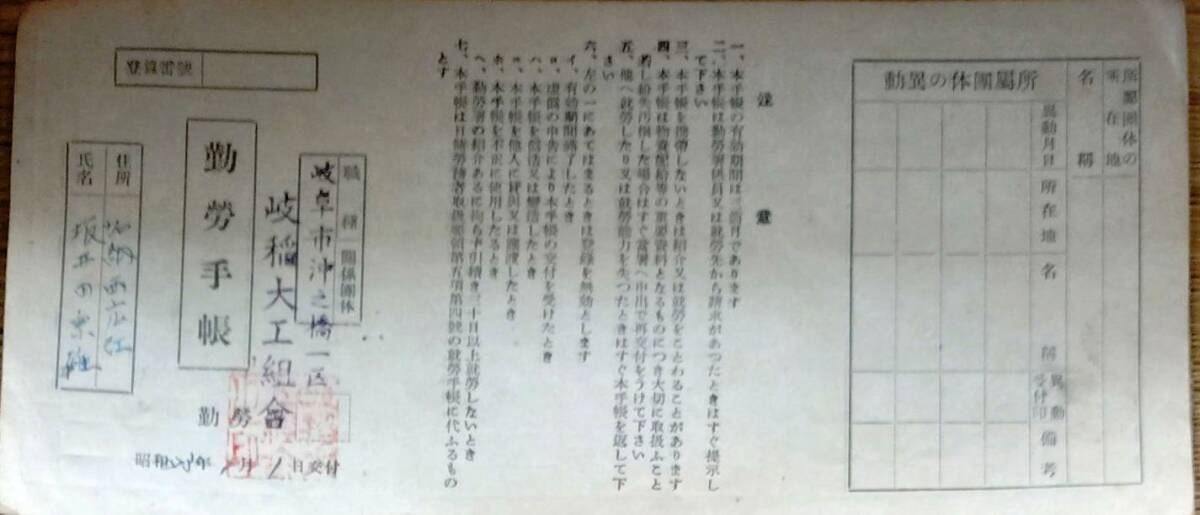 所屬團体の
所在地
名稱
所屬團体の異動
異動月日
所在地
名稱
異動受付印
備考
注意
一、本手帳の有効期間は三箇月であります
二、本手帳は勤勞署係員又は就勞先から請求があつたときはすぐ提示し
て下さい
三、本手帳を携帶しないときは紹介又は就勞をことわることがあります
四、本手帳は物資配給等の重要資料となるものにつき大切に取扱ふこと
若し紛失汚損した場合はすぐ當署へ申出で再交付をうけて下さい
五、他へ就勞したり又は就勞能力を失つたときはすぐ本手帳を返して下
さい
六、左の一にあてはまるときは登録を無効とします
イ、有効期間満了したとき
ロ、虚僞の申告により本手帳の交付を受けたとき
ハ、本手帳を僞造又は變造したとき
ニ、本手帳を他人に貸與又は讓渡したとき
ホ、本手帳を不正に使用したるとき
ヘ、勤勞署の紹介あるに拘らず引續き三十日以上就勞しないとき
七、本手帳は日傭勞務者取扱要領第五項第四號の就勞手帳に代ふるもの
とす
職種
關係團体
岐阜市沖之橋一区
岐稲大工組會
勤勞手帳
登錄番號
住所
加納西広江
氏名
坂井田
勤勞
昭和 年 月 日交付